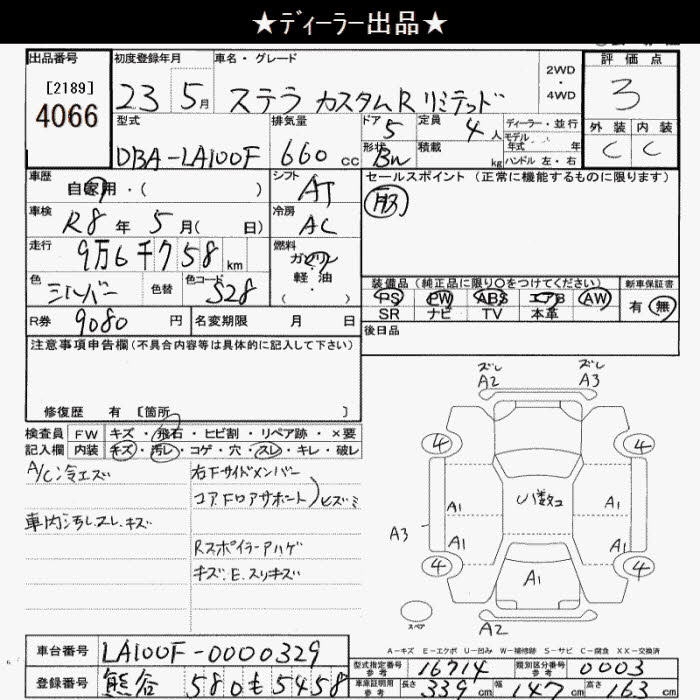 ★ディーラー出品★
出品番号 初度登録年月 車名・グレード 2WD・4WD 評価点
[2189]
4066 23 5月 ステラ カスタムRリミテッド 3
型式 排気量 ドア 定員 ディーラー・並行 外装 内装
DBA-LA100F 660cc 5 4人 モデル年式 年 C C
形状 Bn 積載 kg ハンドル 左・右
車歴 自家用・( ) シフト AT セールスポイント(正常に機能するものに限ります)
車検 R8年 5月( 日) 冷房 AC
走行 9万6千758km 燃料 ガソリン・軽油 ( )
色 シルバー 色替 色コード S28 装備品(純正品に限り○をつけてください) 新車保証書
PS PW ABS エアB AW 有 無
SR ナビ TV 本革
R券 9080円 名変期限 月 日 後日品
注意事項申告欄(不具合内容等は具体的に記入して下さい)
修復歴 有 [箇所 ]
ズレ ズレ
A2 A3
検査員 FW キズ・飛石・ヒビ割・リペア跡・×要
記入欄 内装 キズ・汚レ・コゲ・穴・スレ・キレ・破レ
A/C冷エズ 右Fサイドメンバー
コアFロアサポート)ヒズミ
車内汚レ.スレ.キズ
Rスポイラーアハゲ
キズ.E.スリキズ
4 4
A1 A1
A3 A1 A1
4 4
A1
スペア A2
A-キズ E-エクボ U-凹み W-補修跡 S-サビ C-腐食 XX-交換済
車台番号 LA100F-0000329
型式指定番号 参考 16714 類別区分番号 参考 0003
登録番号 熊谷 580も5458
車庫証明用 参考 長さ 339cm 幅 147cm 高さ 163cm